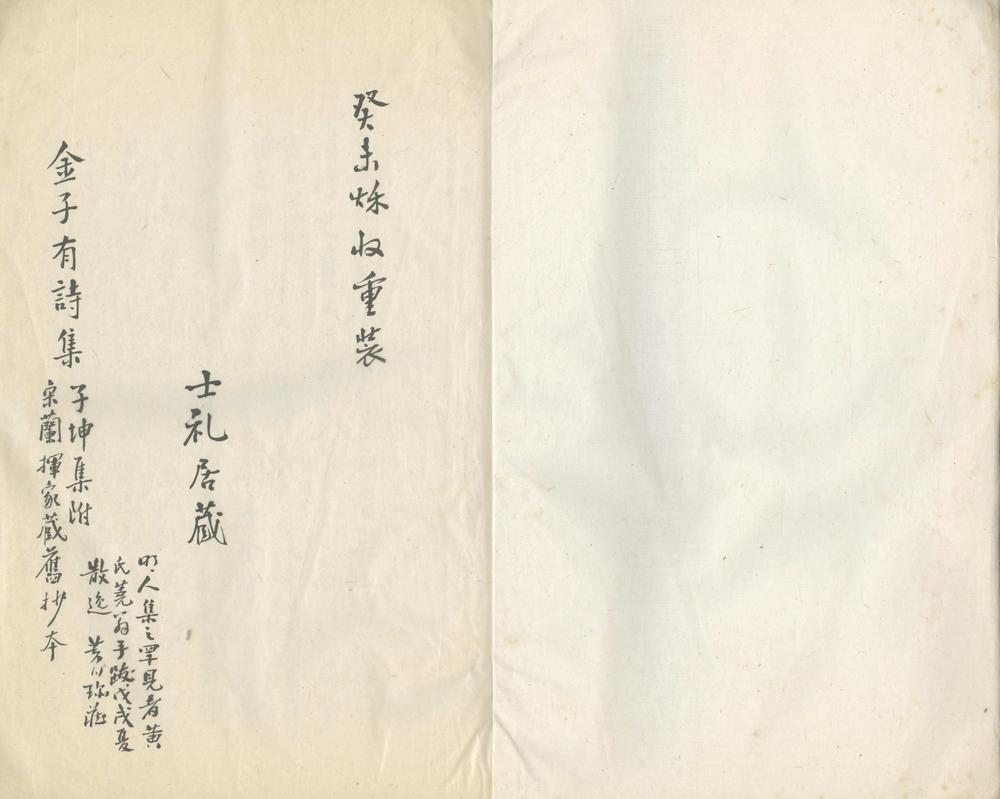 癸未秌収重裝
士礼居藏
金子有詩集
子坤集附
宋蘭揮家藏舊抄本
明人集之罕見者黄
氏蕘翁手跋戊戌夏
散逸